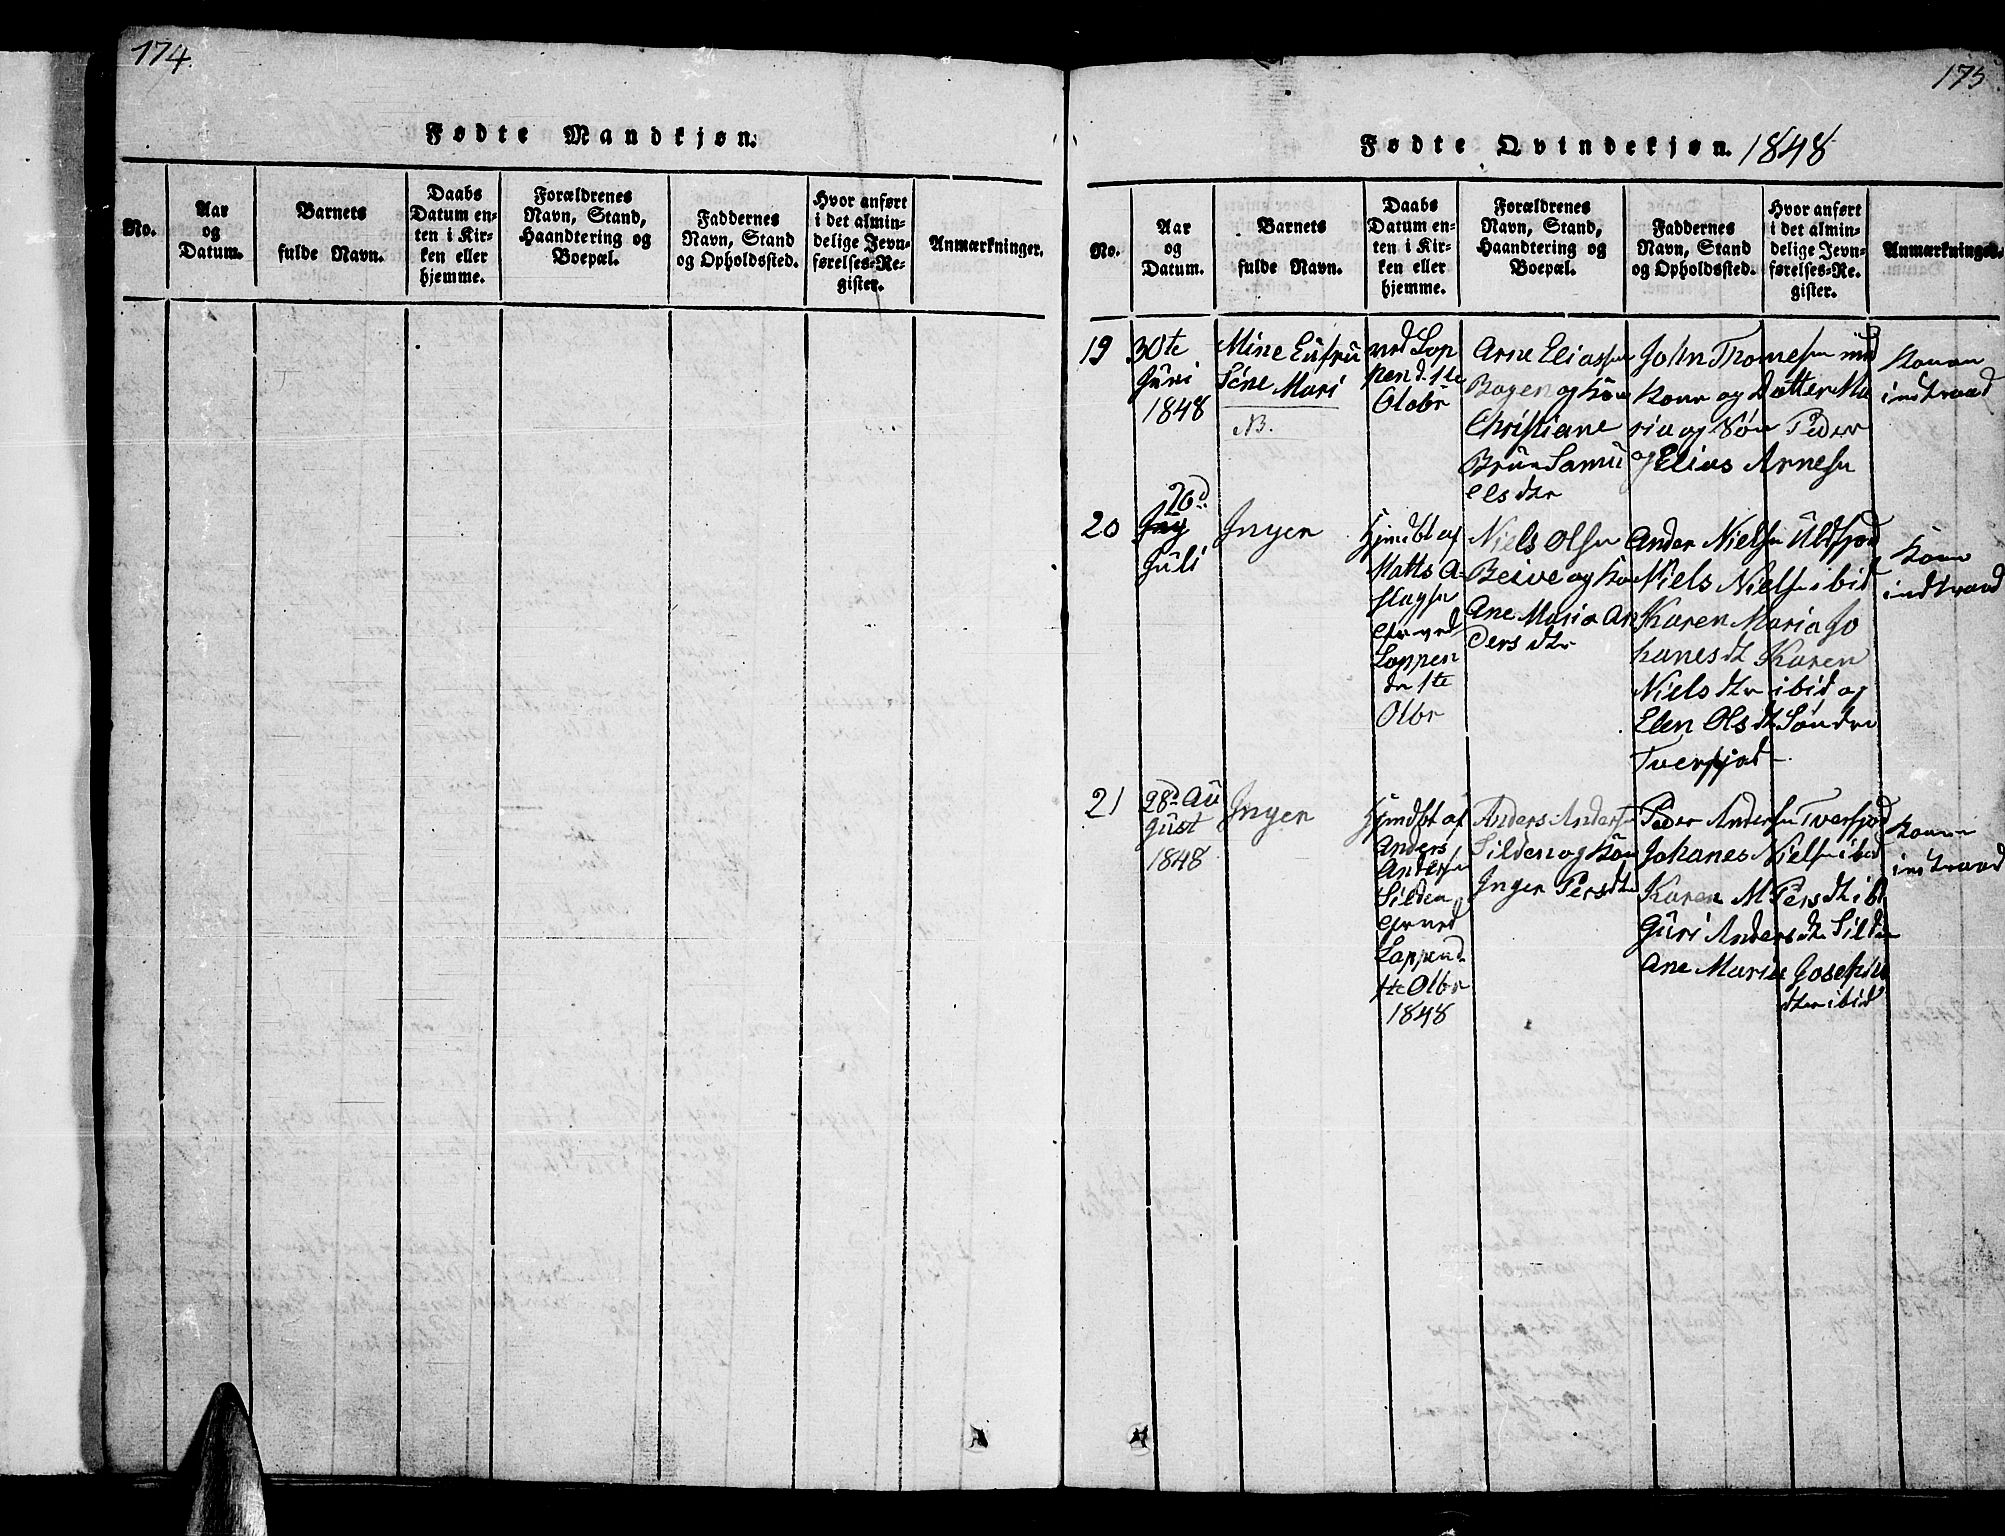 174.
Fødte Mandkjøn.
No.
Aar
og
Datum.
Barnets
fulde Navn.
Daabs
Datum en-
ten i Kir-
ken eller
hjemme.
Forældrenes
Navn, Stand,
Haandtering og
Boepæl.
Faddernes
Navn, Stand
og Opholdssted.
Hvor anført
i det almin-
delige Jevn-
førelses-Re-
gister.
Anmærkninger.
175
Fødte Qvindekjøn. 1848
No.
Aar
og
Datum.
Barnets
fulde Navn.
Daabs
Datum en-
ten i Kir-
ken eller
hjemme.
Forældrenes
Navn, Stand,
Haandtering og
Boepæl.
Faddernes
Navn, Stand
og Opholdssted.
Hvor anført
i det almin-
delige Jevn-
førelses-Re-
gister.
Anmærkninger.
19
30te
Juni
1848
Mine Eufru
Sine Mari
N.
ved Lop
pen d. 1te
Octobr
Arne Eliassen
Bogen og Kone
Christiane
Brun Samu
elsdtr
John Thomesen med
Kone og Datter Ma
ria og Søn Peder
og Elias Arnesen
Konen
indtraad
20
26d
Juli
Inger
Hjmdbt af
Matts A-
slagsen
ved
Loppen
dn 1te
Otbr
Niels Olsen
Beive og Kone
Ane Maria An
dersdtr
Ander Nielsen Ulsfjord
Niels Nielsen ibid
Karen Maria Jo
hanesdt Karen
Nielsdtr ibid og
Elen Olsdtr Søndre
Tverfjord
Kone
indtraad
21
28d Au
gust
1848
Inger
Hjmdbt af
Anders
Andersen
Silden
ved
Loppen d.
1te Otbr
1848
Anders Andersen
Silden og Kone
Inger Persdtr
Peder Andersen Tverfjord
Johanes Nielsen ibid
Karen M Persdt ibd
Guri Andersdtr Silden
Ane Maria Josephine
dtr ibid
Konen
indtraad